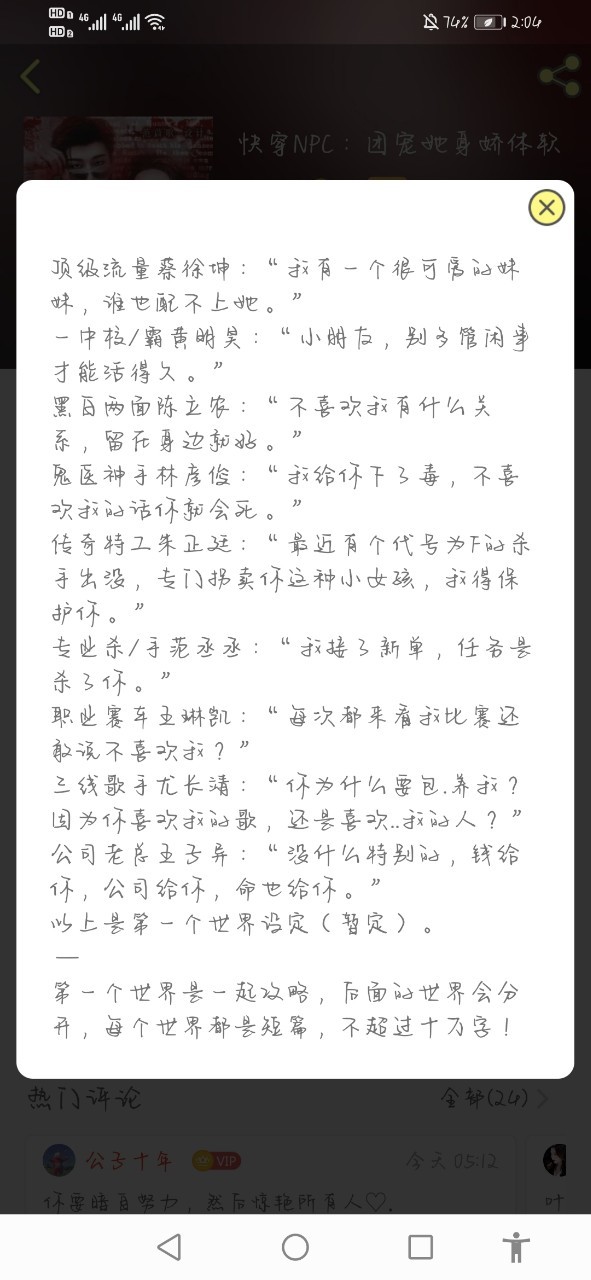 HD 1 4G 4G 74% 2:04
HD 2
快穿NPC：团宠她身娇体软
顶级流量蔡徐坤：“我有一个很可爱的妹
妹，谁也配不上她。”
一中校/霸黄明昊：“小朋友，别多管闲事
才能活得久。”
黑白两面陈立农：“不喜欢我有什么关
系，留在身边就好。”
鬼医神手林彦俊：“我给你下了毒，不喜
欢我的话你就会死。”
传奇特工朱正廷：“最近有个代号为F的杀
手出没，专门拐卖你这种小女孩，我得保
护你。”
专业杀/手范丞丞：“我接了新单，任务是
杀了你。”
职业赛车王琳凯：“每次都来看我比赛还
敢说不喜欢我？”
三线歌手尤长靖：“你为什么要包.养我？
因为你喜欢我的歌，还是喜欢..我的人？”
公司老总王子异：“没什么特别的，钱给
你，公司给你，命也给你。”
以上是第一个世界设定（暂定）。
—
第一个世界是一起攻略，后面的世界会分
开，每个世界都是短篇，不超过十万字！
热门评论 全部(24)
公子十年 VIP 今天 05:12
你要暗自努力，然后惊艳所有人♡.
叶